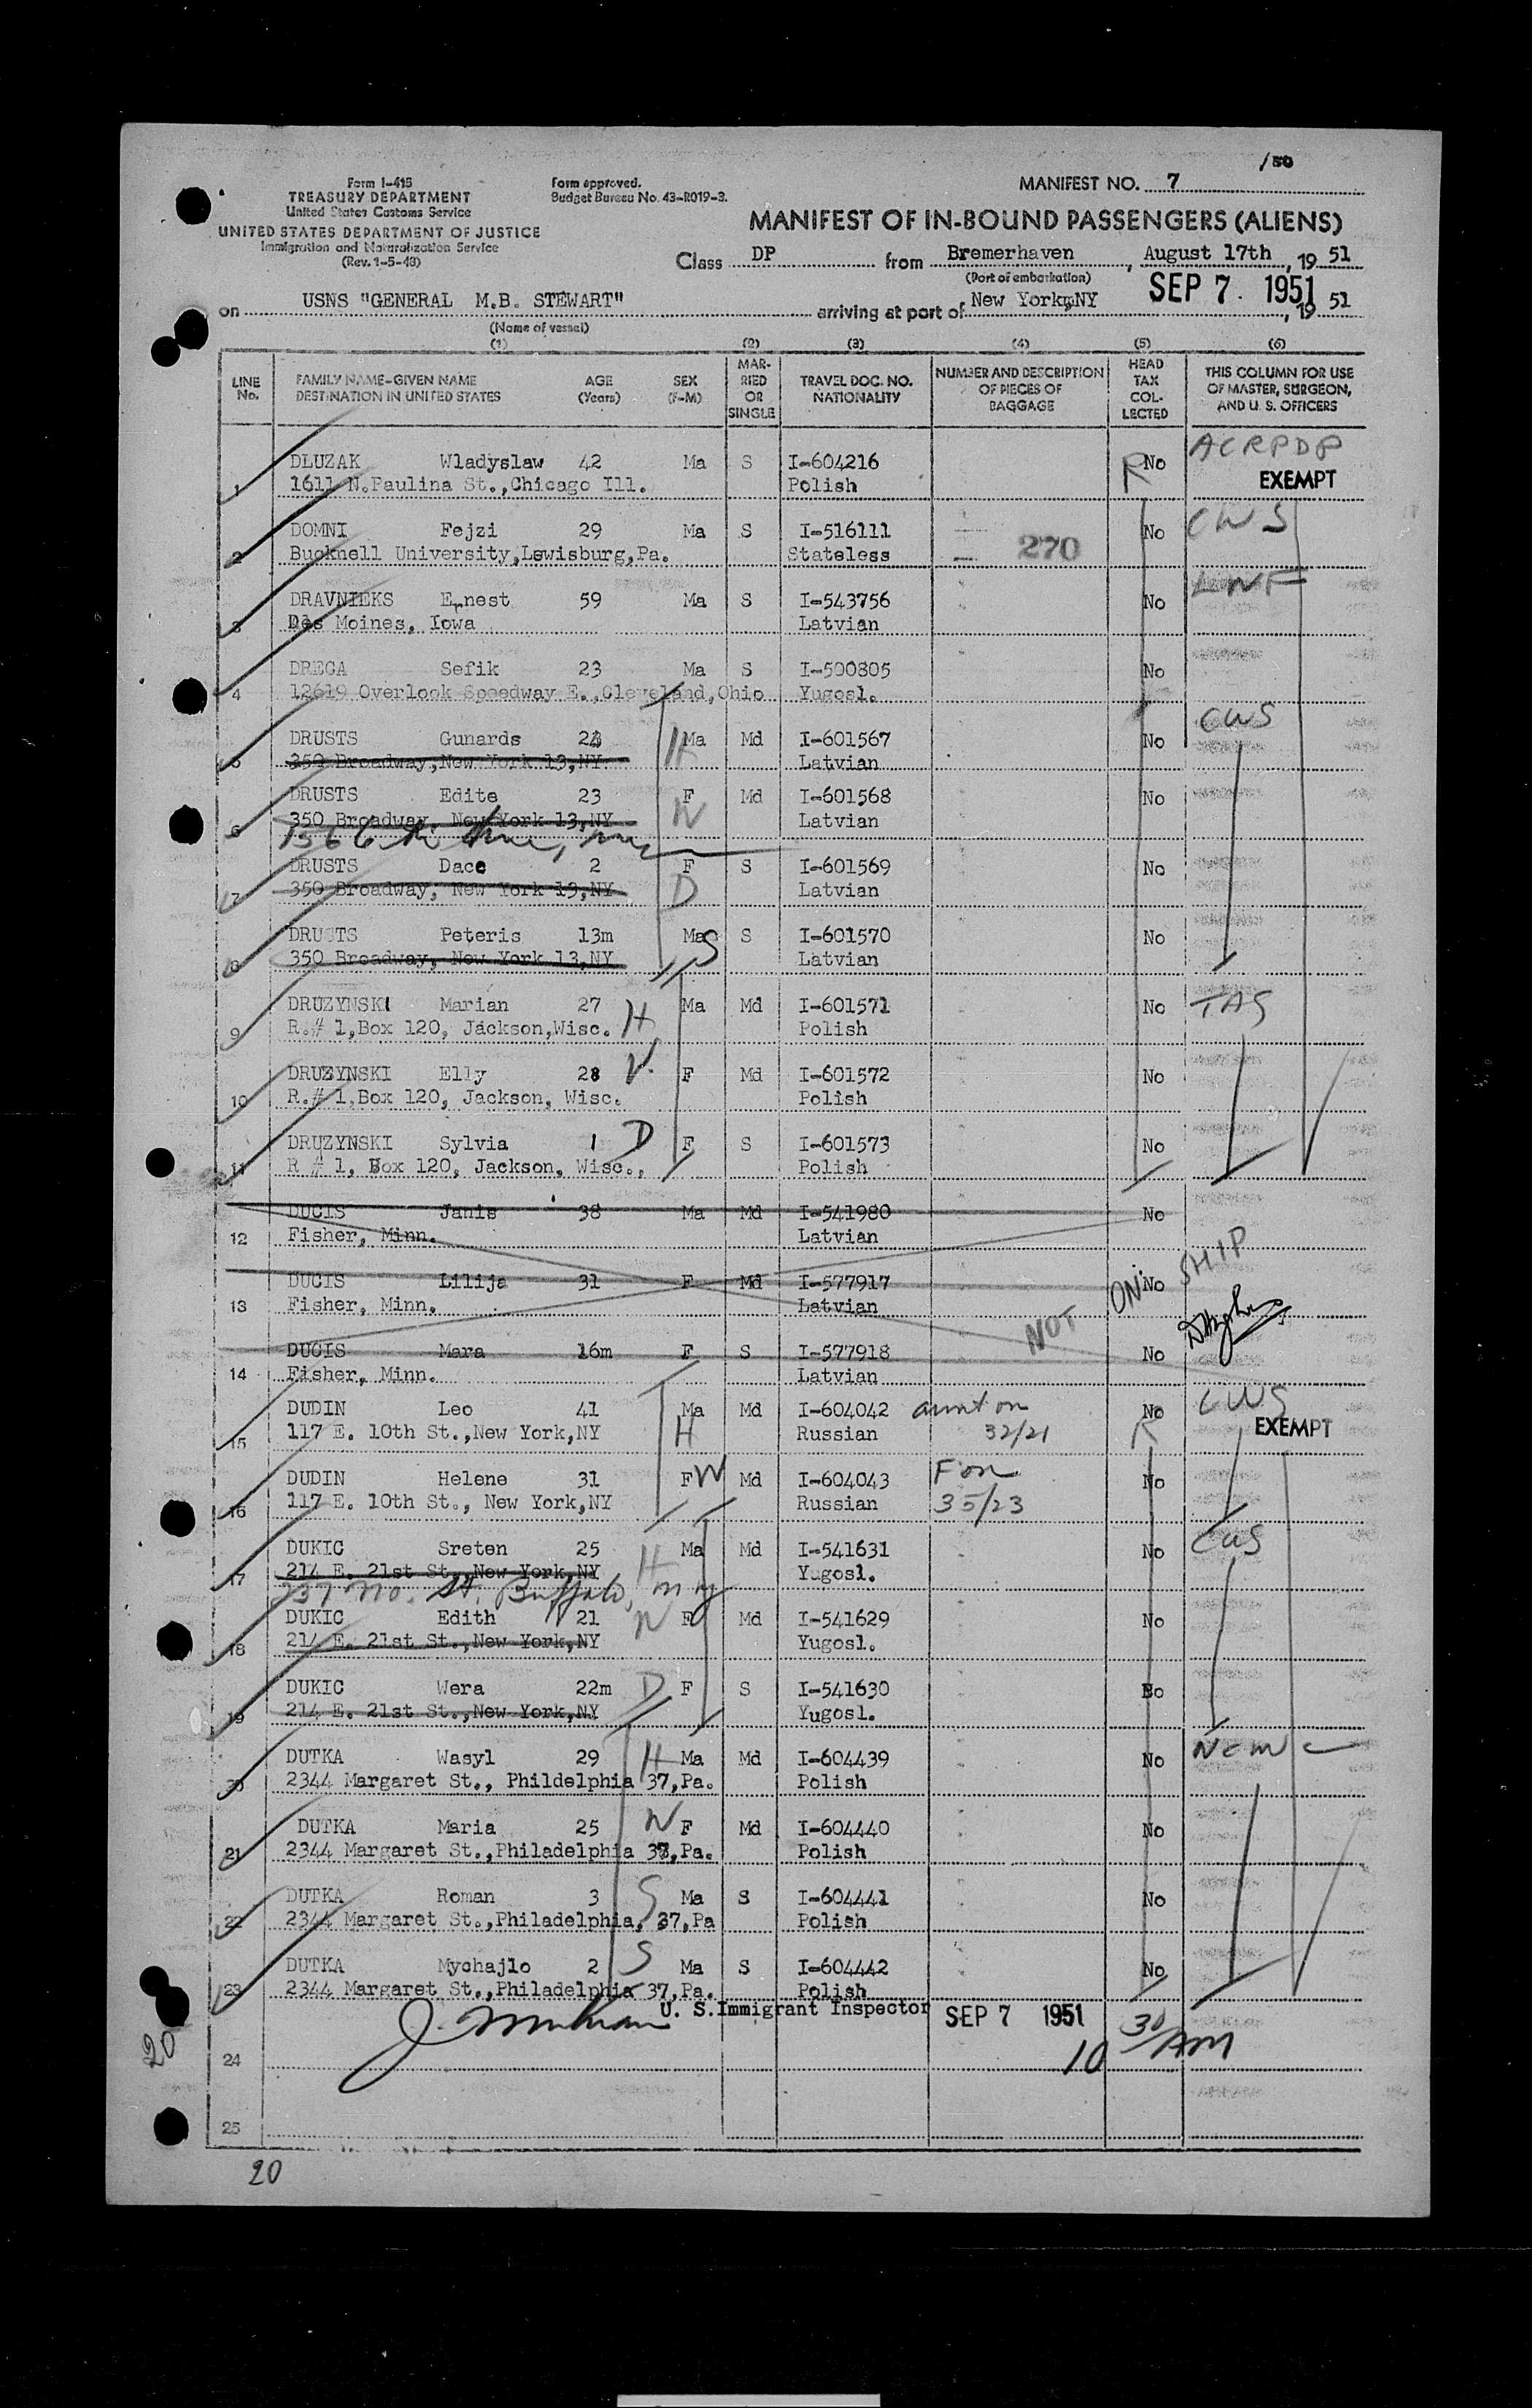 /50
Form I-415
TREASURY DEPARTMENT
United States Customs Service
UNITED STATES DEPARTMENT OF JUSTICE
Immigration and Naturalization Service
(Rev. 1-5-48)
Form approved.
Budget Bureau No. 43-R019-3.
MANIFEST NO. 7
MANIFEST OF IN-BOUND PASSENGERS (ALIENS)
Class DP from Bremerhaven, August 17th, 19 51
(Port of embarkation)
on USNS "GENERAL M.B. STEWART" arriving at port of New York, NY SEP 7. 1951, 19 51
(Name of vessel)
(1) (2) (3) (4) (5) (6)
LINE No. FAMILY NAME-GIVEN NAME DESTINATION IN UNITED STATES AGE (Years) SEX (F-M) MARRIED OR SINGLE TRAVEL DOC. NO. NATIONALITY NUMBER AND DESCRIPTION OF PIECES OF BAGGAGE HEAD TAX COLLECTED THIS COLUMN FOR USE OF MASTER, SURGEON, AND U. S. OFFICERS
1 DLUZAK Wladyslaw 42 Ma S I-604216 R No ACRPDP
1611 N.Paulina St.,Chicago Ill. Polish EXEMPT
2 DOMNI Fejzi 29 Ma S I-516111 No CWS
Bucknell University,Lewisburg,Pa. Stateless 270
3 DRAVNIEKS Ernest 59 Ma S I-543756 No LWF
Des Moines, Iowa Latvian
4 DREGA Sefik 23 Ma S I-500805 No
12619 Overlook Speedway E.,Cleveland,Ohio Yugosl.
5 DRUSTS Gunards 23 H Ma Md I-601567 No CWS
350 Broadway,New York 13,NY Latvian
6 DRUSTS Edite 23 F W Md I-601568 No
350 Broadway, New York 13,NY Latvian
7 DRUSTS Dace 2 F D S I-601569 No
350 Broadway, New York 13,NY Latvian
8 DRUSTS Peteris 13m Ma S S I-601570 No
350 Broadway, New York 13,NY Latvian
9 DRUZYNSKI Marian 27 H Ma Md I-601571 No TAS
R.# 1,Box 120, Jackson,Wisc. Polish
10 DRUZYNSKI Elly 28 W F Md I-601572 No
R.# 1,Box 120, Jackson, Wisc. Polish
11 DRUZYNSKI Sylvia 1 D F S I-601573 No
R # 1, Box 120, Jackson, Wisc., Polish
12 DUCIS Janis 38 Ma Md I-541980 No
Fisher, Minn. Latvian
13 DUCIS Lilija 31 F Md I-577917 No
Fisher, Minn. Latvian
NOT ON SHIP
14 DUCIS Mara 16m F S I-577918 No
Fisher, Minn. Latvian
15 DUDIN Leo 41 Ma H Md I-604042 aunt on No CWS
117 E. 10th St.,New York,NY Russian 32/21 R EXEMPT
16 DUDIN Helene 31 F W Md I-604043 F on No
117 E. 10th St., New York,NY Russian 35/23
17 DUKIC Sreten 25 H Ma Md I-541631 No CWS
214 E. 21st St.,New York,NY Yugosl.
237 No. St. Buffalo, N Y
18 DUKIC Edith 21 W F Md I-541629 No
214 E. 21st St.,New York,NY Yugosl.
19 DUKIC Wera 22m D F S I-541630 No
214 E. 21st St.,New York,NY Yugosl.
20 DUTKA Wasyl 29 H Ma Md I-604439 No NCWC
2344 Margaret St., Phildelphia 37,Pa. Polish
21 DUTKA Maria 25 W F Md I-604440 No
2344 Margaret St.,Philadelphia 37,Pa. Polish
22 DUTKA Roman 3 S Ma S I-604441 No
2344 Margaret St.,Philadelphia, 37,Pa Polish
23 DUTKA Mychajlo 2 S Ma S I-604442 No
2344 Margaret St.,Philadelphia 37,Pa. Polish
U. S. Immigrant Inspector SEP 7 1951 10 30 AM
20
24
25
20